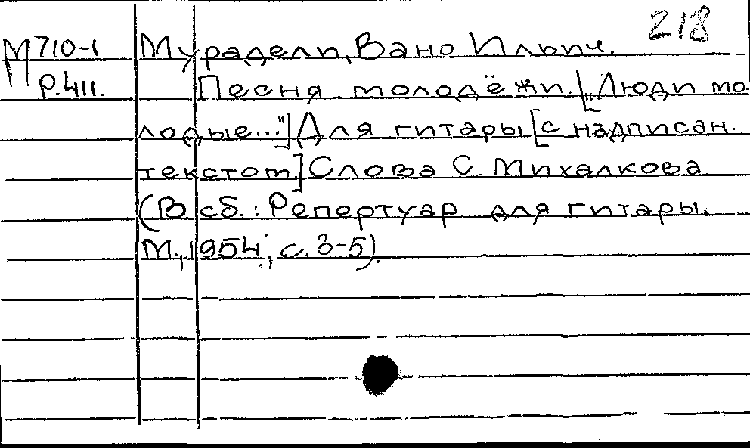 218
М710-1 Мурадели, Вано Ильич.
Р.411. Песня молодёжи. ["Люди мо-
лодые..."] Для гитары [с надписан.
текстом] Слова С. Михалкова
(В сб.: Репертуар для гитары.
М., 1954, с. 3-5).